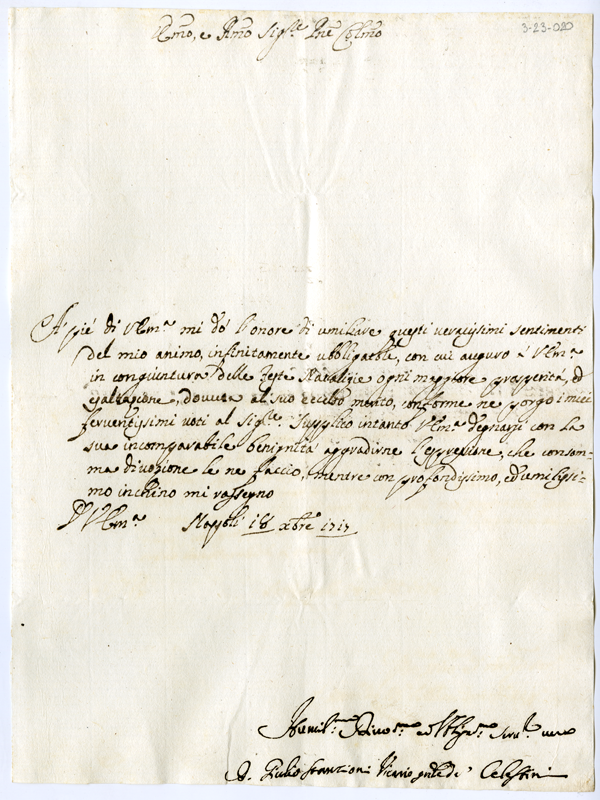 3-23-020
Emo, e Rmo Sig.re Pne Colmo
A' pié di VEm.a mi dó l'onore di umiliare questi veracissimi sentimenti
del mio animo, infinitamente obbligatole, con cui auguro á VEm.a
in congiuntura delle feste Natalizie ogni maggiore prosperitá, ed
esaltazione, dovuta al suo eccelso merito, conforme ne porgo i miei
ferventissimi voti al Sig.re. Supplico intanto VEm.a degnarsi con la
sua incomparabile benignitá aggradirne l'espressione, che con som-
ma divozione le ne faccio, mentre con profondissimo, ed umilissi-
mo inchino mi rassegno
D VEm.a Napoli 18 xbre 1717
Humil.mo Divo.mo ed Obligat.mo Serv.re vero
D. Giulio Stanzioni Vicario gnle de' Celestini